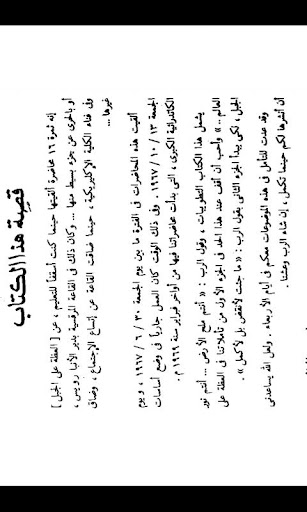 قصة هذا الكتاب
إنه ثمرة ١٦ محاضرة ألقيتها حينما كنت أسقفاً للتعليم ، عن [ العظة على الجبل ]
أو بالحرى عن جزء بسيط منها ... وكان ذلك فى القاعة المرقسية بدير الأنبا رويس ،
وفى فناء الكلية الإكليريكية ، حينما ضاقت القاعة عن إتساع الإجتماع ، وضاق
غيرها ...
ألقيت هذه المحاضرات فى الفترة ما بين يوم الجمعة ٣٠ / ٦ / ١٩٦٧ ، ويوم
الجمعة ١٣ / ١٠ / ١٩٦٧ . وفى ذلك الوقت كان العمل جارياً فى وضع أساسات
الكاتدرائية الكبرى ، التى بدأت محاضراتنا فيها من أواخر فبراير سنة ١٩٦٩ م .
يشمل هذا الكتاب التطويبات ، وقول الرب : « أنتم ملح الأرض ... أنتم نور
العالم .. » وأحب أن أقف عند هذا الحد فى الجزء الأول من تأملاتنا فى العظة على
الجبل ، لكى يبدأ الجزء الثانى بقول الرب : « ما جئت لأنقض بل لأكمل » .
وقد عدت للتأمل فى هذه الموضوعات معكم فى أيام الأربعاء . ولعل الله يساعدنى
أن أنشرها لكم حينما تكمل ، إن شاء الرب وعشنا .